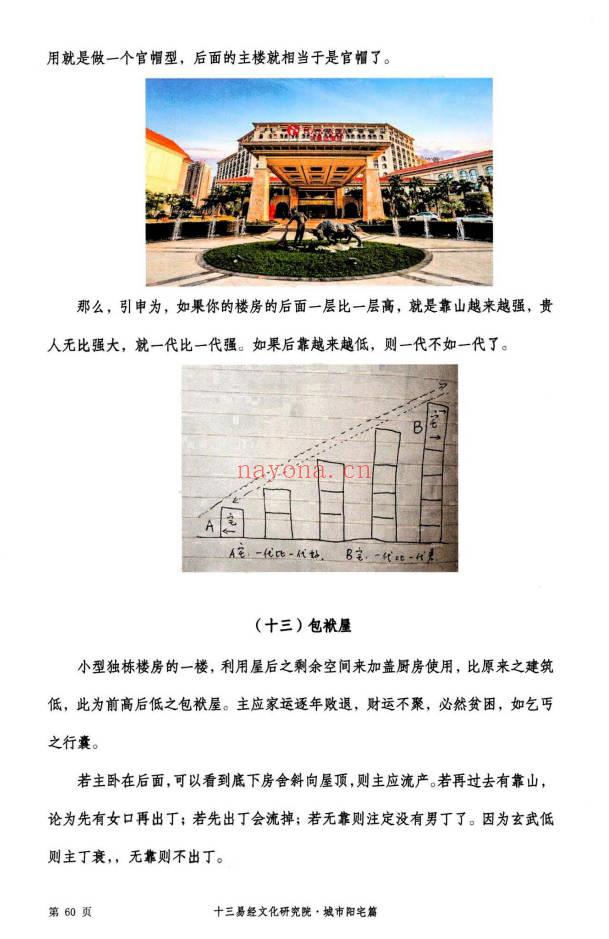 用就是做一个官帽型，后面的主楼就相当于是官帽了。
那么，引申为，如果你的楼房的后面一层比一层高，就是靠山越来越强，贵
人无比强大，就一代比一代强。如果后靠越来越低，则一代不如一代了。
nayona.cn
B
宅
A
宅
A宅：一代比一代好。
B宅：一代比一代差
（十三）包袱屋
小型独栋楼房的一楼，利用屋后之剩余空间来加盖厨房使用，比原来之建筑
低，此为前高后低之包袱屋。主应家运逐年败退，财运不聚，必然贫困，如乞丐
之行囊。
若主卧在后面，可以看到底下房舍斜向屋顶，则主应流产。若再过去有靠山，
论为先有女口再出丁；若先出丁会流掉；若无靠则注定没有男丁了。因为玄武低
则主丁衰，，无靠则不出丁。
第 60 页
十三易经文化研究院·城市阳宅篇